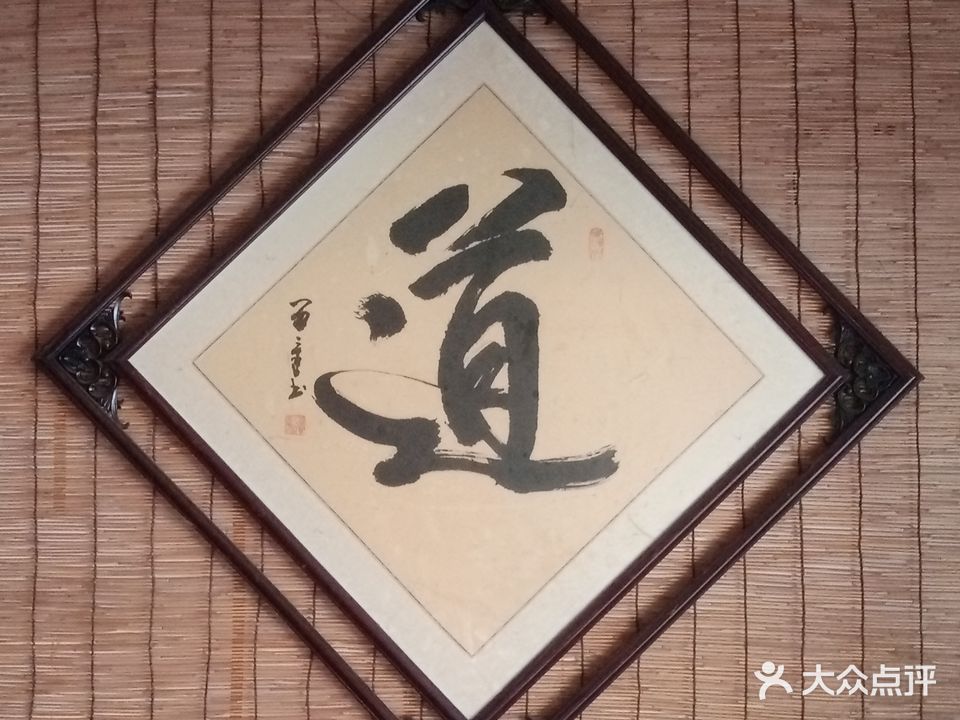 道
大众点评